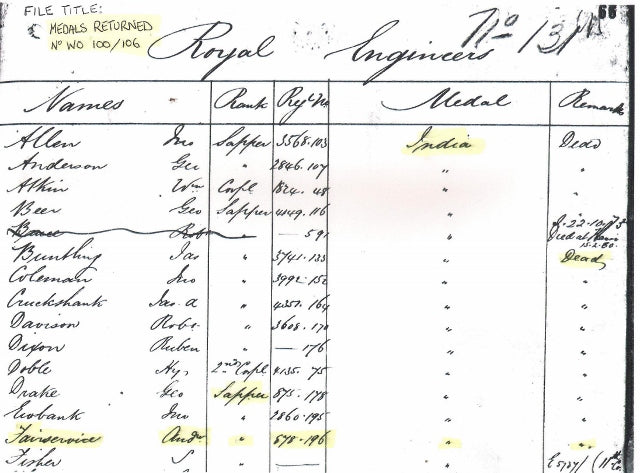 FILE TITLE:
MEDALS RETURNED
Nº WO 100/106
66
Royal Engineers Nº 131
Names Rank Regtl No Medal Remarks
Allen Jno Sapper 3568.103 India Dead
Anderson Geo " 2846.107 " "
Atkin Wm Corpl 1824. 48 " "
Beer Geo Sapper 4449.116 "
Robt " — 591 Died at 15.2.80
Buntling Jas " 3741.133 " Dead
Coleman Jno " 3992.152 " "
Cruckshank Jas. a " 4357.164 " "
Davison Robt " 3608.170 " "
Dixon Ruben " — 176 " "
Doble Hy. 2nd Corpl 4135. 75 " "
Drake Geo Sapper 875.178 " "
Ewbank Jno " 2860.195 " "
Fairservice Andw " 578.196 " "
Fisher S " "